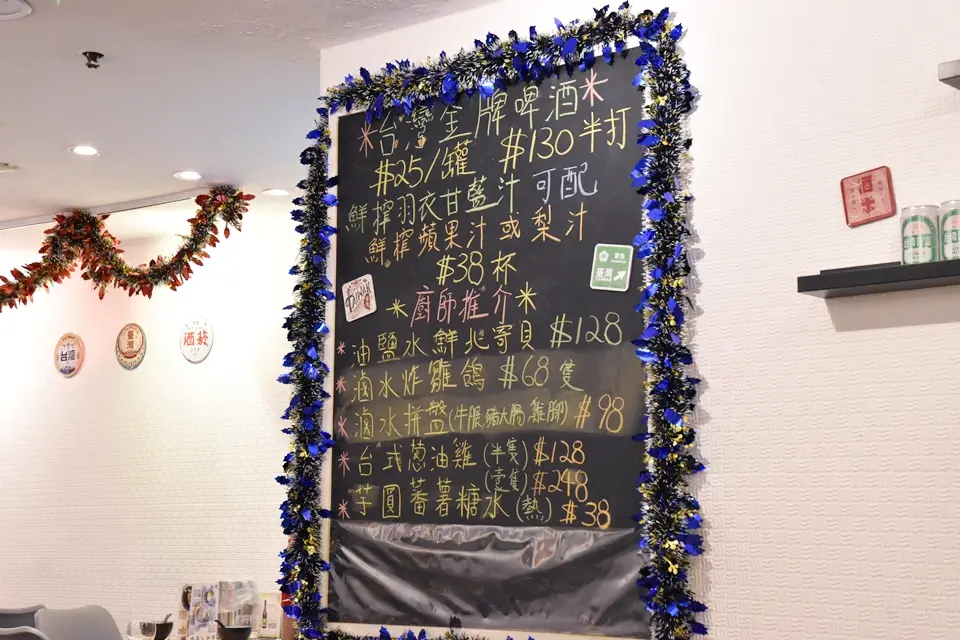 *台灣金牌啤酒*
$25/罐 $130半打
鮮榨羽衣甘藍汁 可配
鮮榨蘋果汁或梨汁
$38杯
*廚師推介*
*油鹽水鮮北寄貝 $128
*滷水炸雞鴿 $68隻
*滷水拼盤(牛𦟌,豬大腸,雞腳) $98
*台式蔥油雞(半隻) $128
(壹隻) $248
*芋圓蕃薯糖水(熱) $38
臺灣
TAIWAN
台灣
臺灣
酒菸